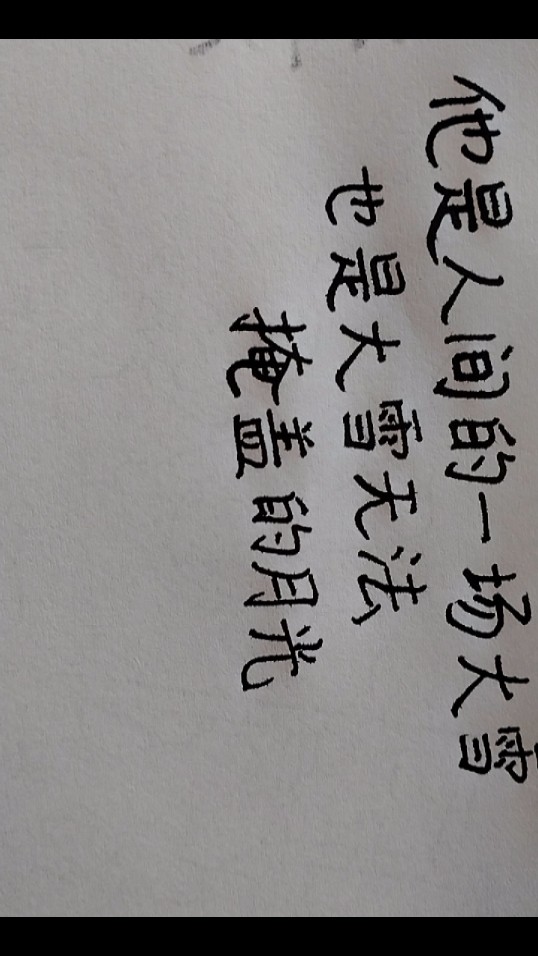 他是人间的一场大雪
也是大雪无法
掩盖的月光